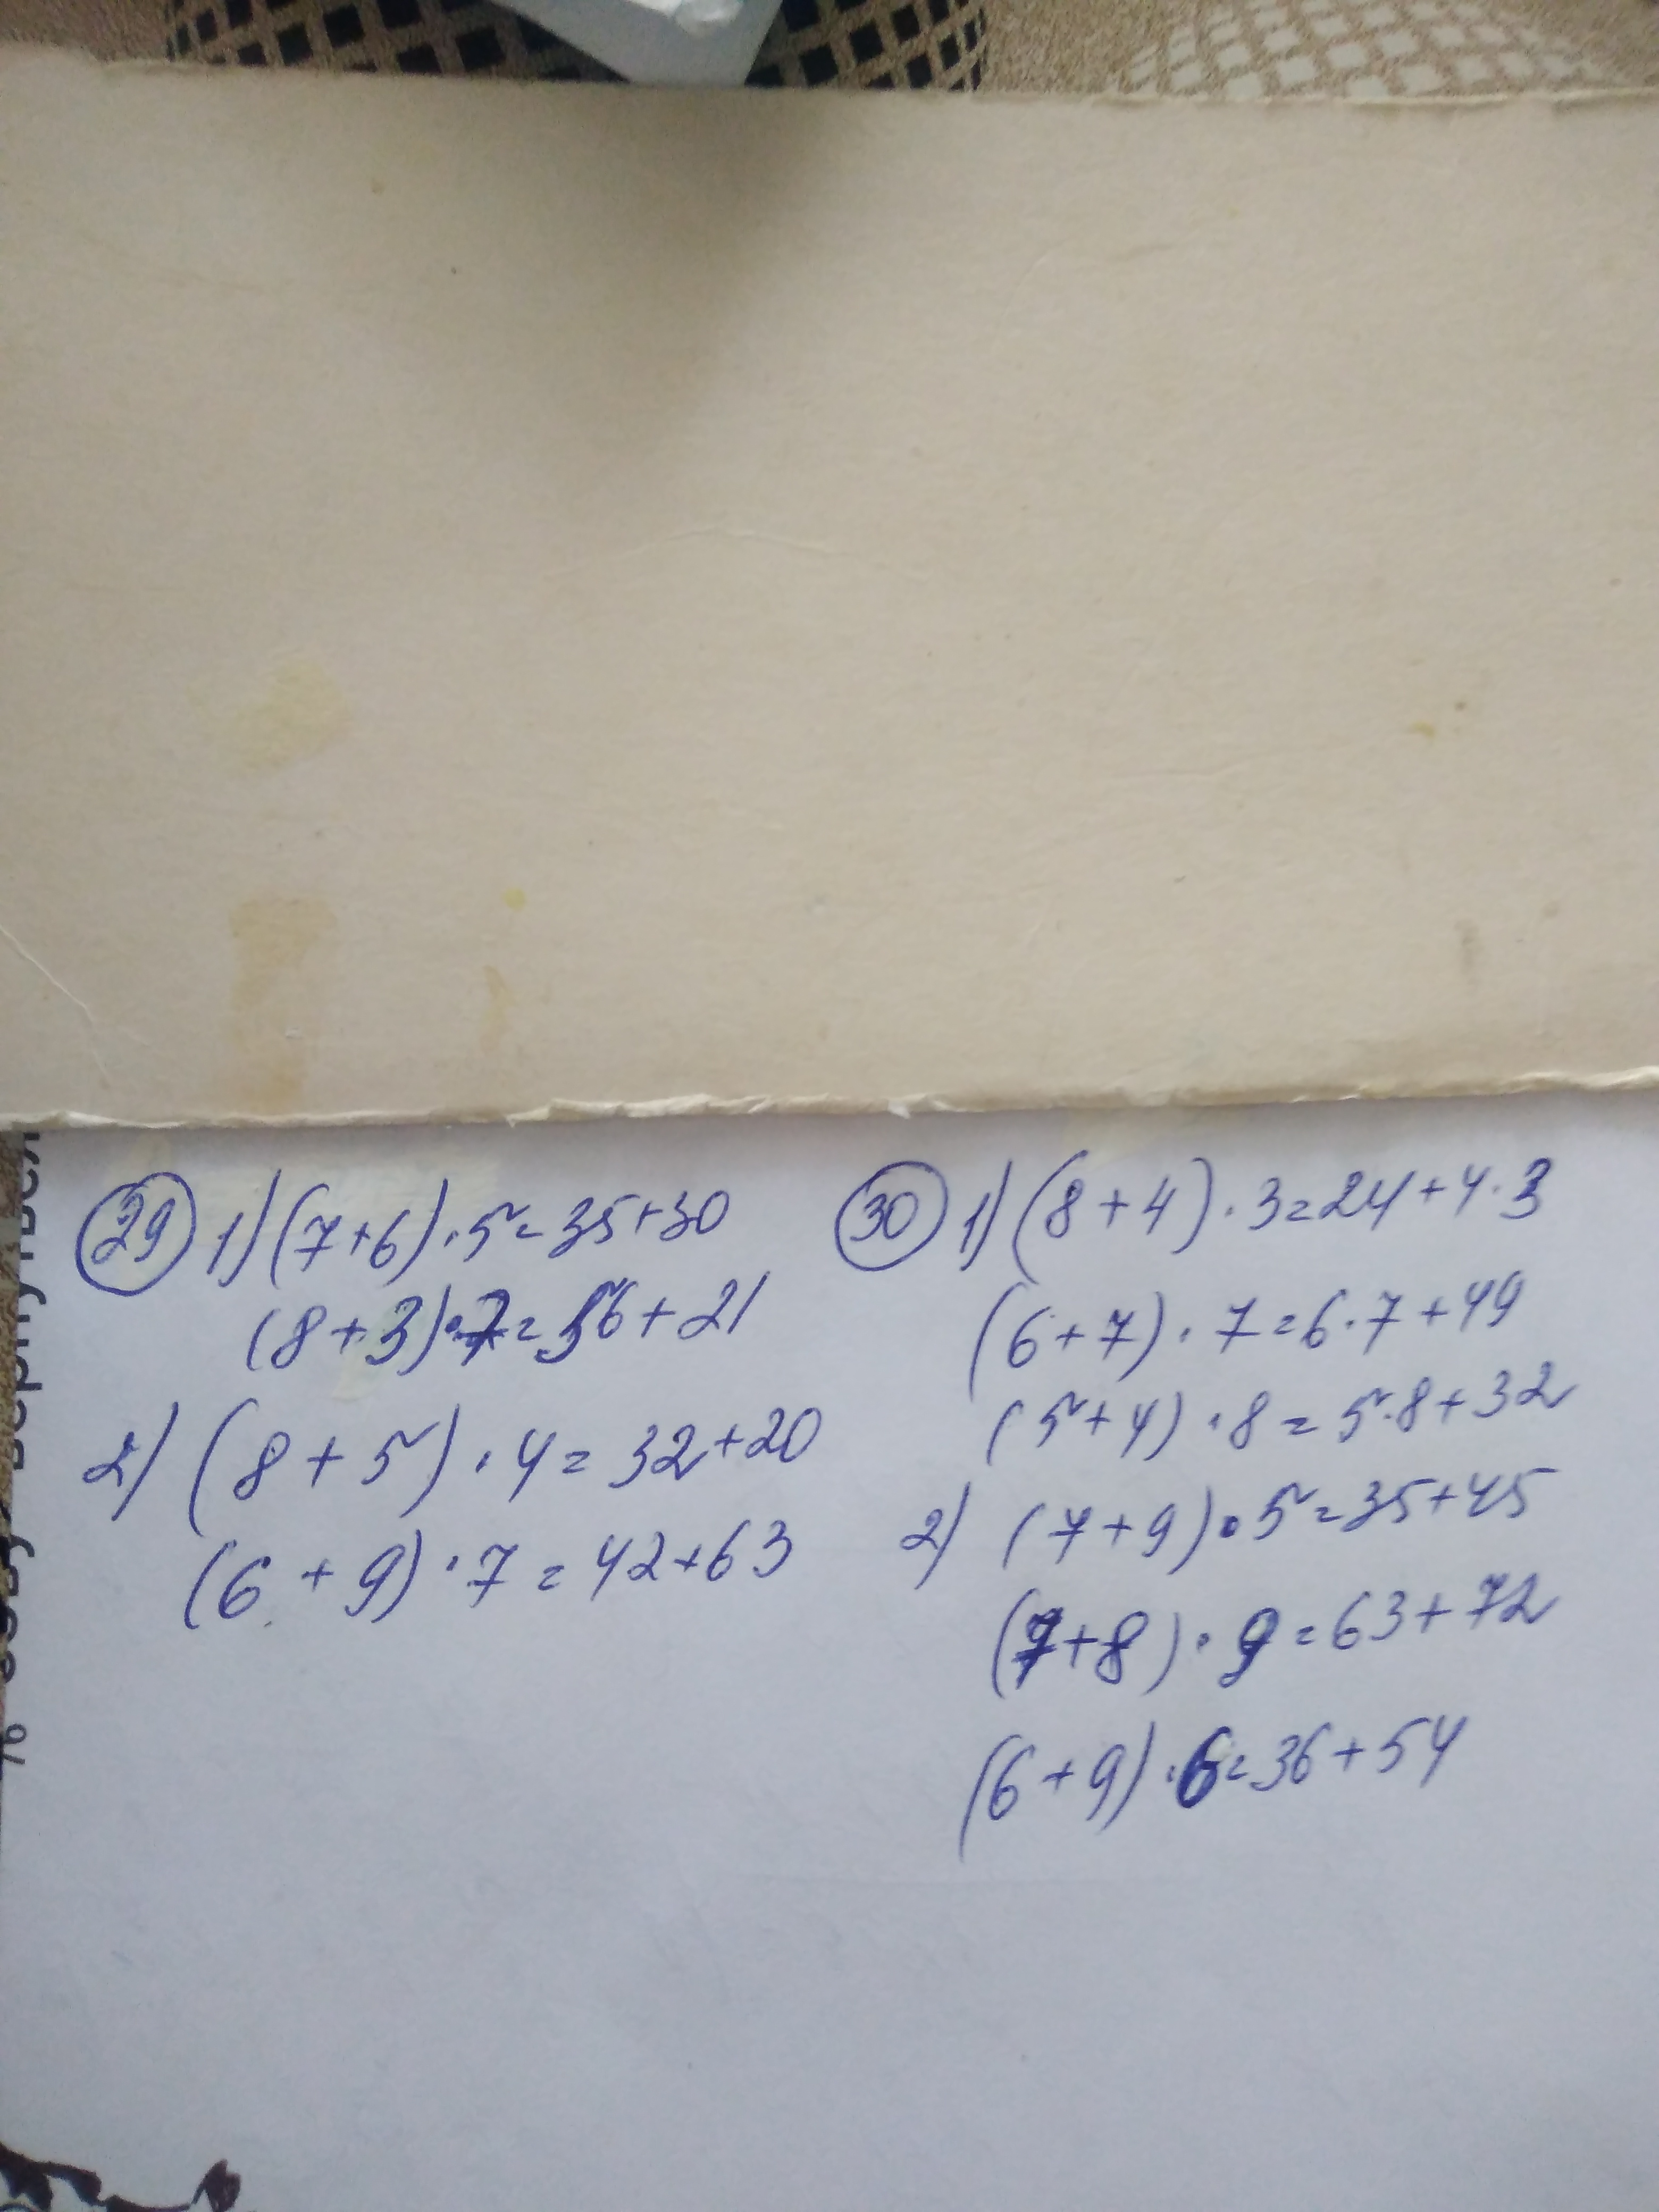 29 1) (7+6)·5=35+30
(8+3)·7=56+21
2) (8+5)·4=32+20
(6+9)·7=42+63
30 1) (8+4)·3=24+4·3
(6+7)·7=6·7+49
(5+4)·8=5·8+32
2) (7+9)·5=35+45
(7+8)·9=63+72
(6+9)·6=36+54